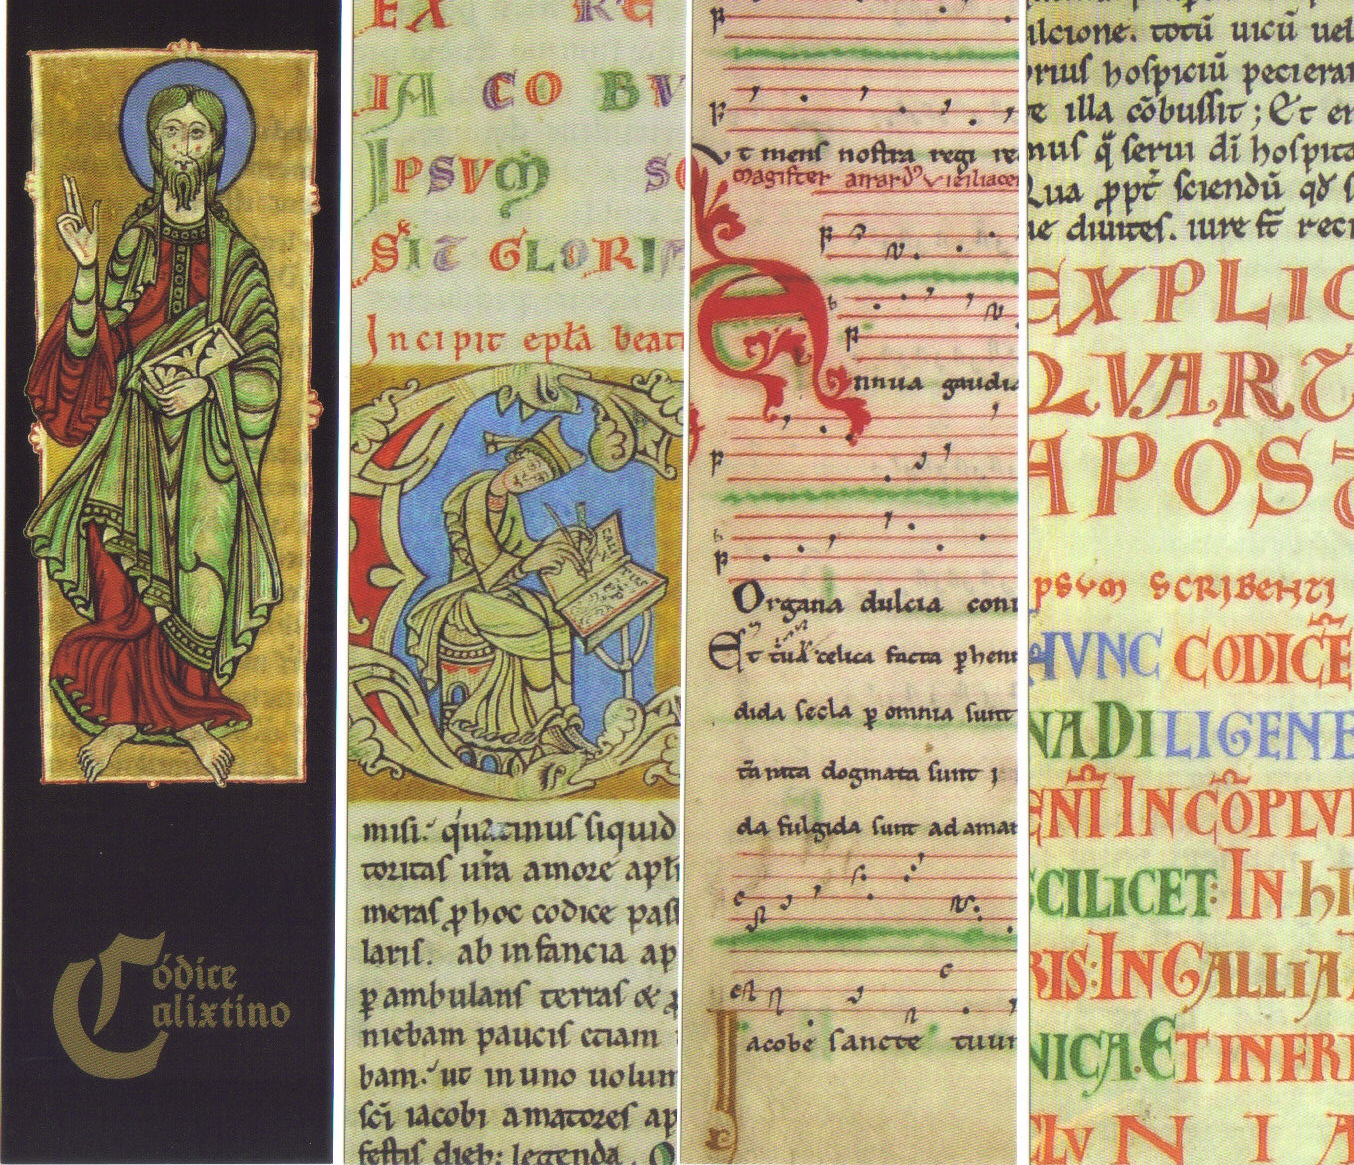 Códice
Calixtino
EX RE
IA CO BV
IPSVM SC
SIT GLORIA
Incipit epła beati
CALI
misi. quatinus siquid
toritas uřa amore apłi
meras p hoc codice pass
laris. ab infancia ap
p ambulans terras &
niebam paucis etiam
bam. ut in uno uolum
sči iacobi amatores ap
festis dieb; legenda. O
t mens nostra regi re
Magister airardus viziliacen
Annua gaudia
Organa dulcia conu
Et celica facta p heni
dida secla p omnia sunt
dogmata sunt
da fulgida sunt adaman
Iacobe sancte tuum
ulcione. totū uicū uel
rius hospiciū pecieran
e illa cōbussit; Et en
mus serui dī hospita
Qua sciendū
ue diuites. iure recip
EXPLIC
QVART
APOST
IPSVM SCRIBENTI
HVNC CODICĒ
NA DILIGENE
INCŌPLV
SCILICET: IN HI
RIS: IN GALLIA
NICA. ET IN FRI
CLVNIA